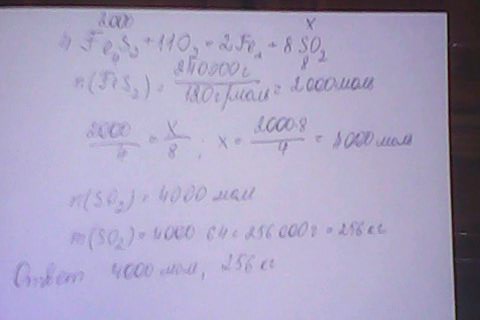 2000 x
4 FeS₂ + 11O₂ = 2Fe₂ + 8SO₂
4 8
n(FeS₂) = 240000г / 120г/моль = 2000моль
2000/4 = x/8 ; x = 2000·8/4 = 4000 моль
n(SO₂) = 4000 моль
m(SO₂) = 4000 64 = 256 000 г = 256 кг
Ответ 4000 моль, 256 кг